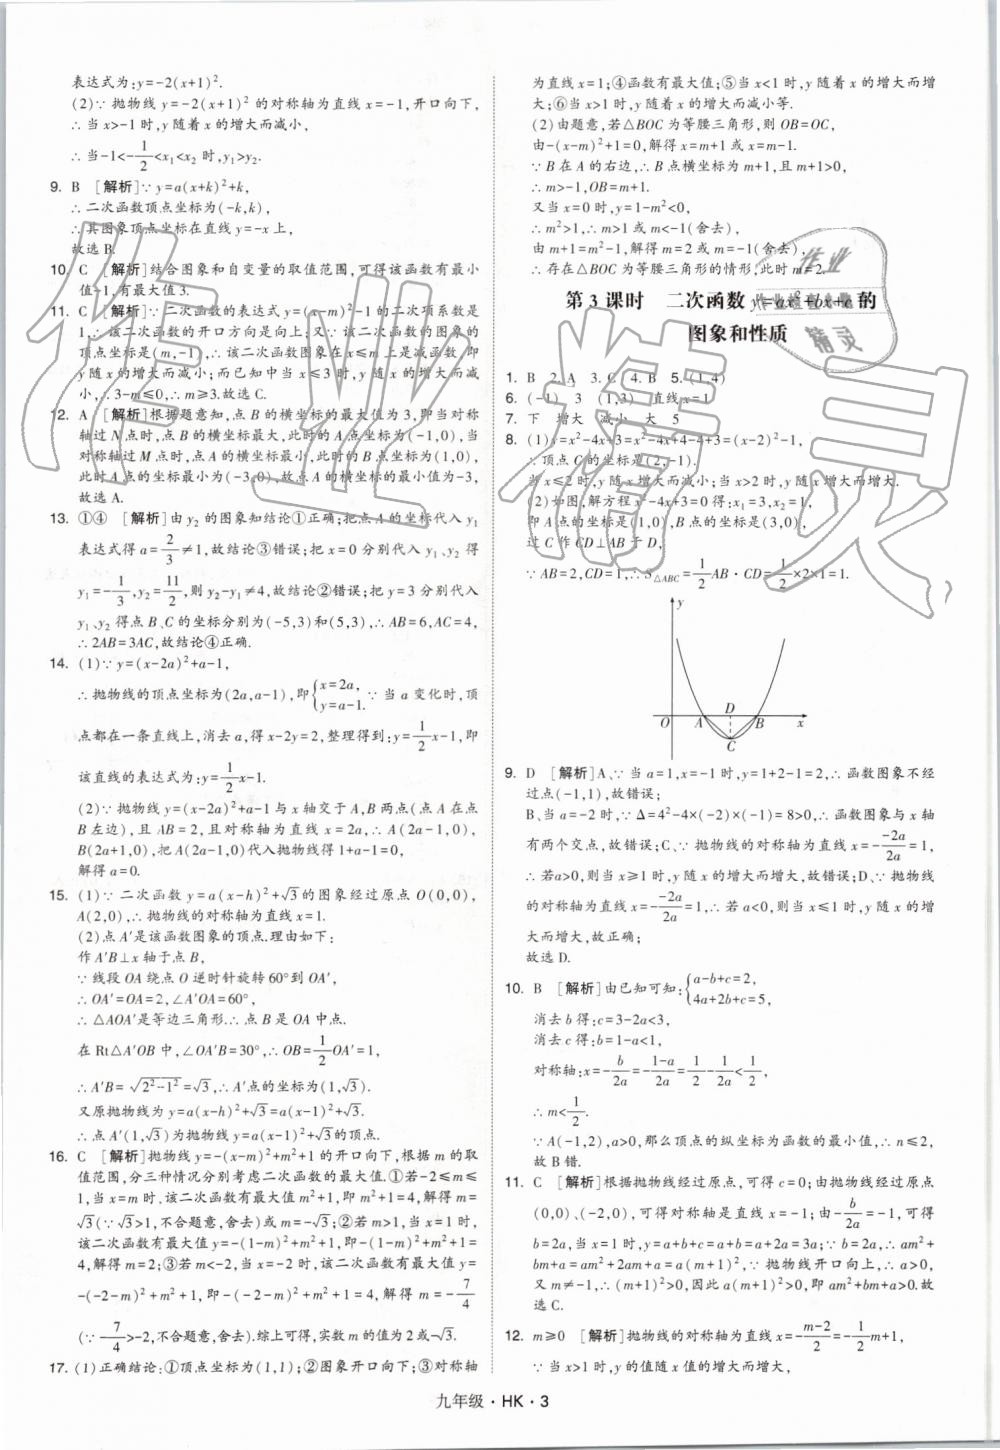 表达式为:y=-2(x+1)².
(2)∵抛物线 y=-2(x+1)² 的对称轴为直线 x=-1,开口向下,
∴当 x>-1 时,y 随着 x 的增大而减小,
∴当-1<-1/2<x₁<x₂ 时,y₁>y₂.
9. B [解析]∵y=a(x+k)²+k,
∴二次函数顶点坐标为(-k,k),
∴其图象顶点坐标在直线 y=-x 上,
故选 B.
10. C [解析]结合图象和自变量的取值范围,可得该函数有最小
值-1,有最大值 3.
11. C [解析]∵二次函数的表达式 y=(x-m)²-1 的二次项系数是
1,∴该二次函数的开口方向是向上.又∵该二次函数的图象的
顶点坐标是(m,-1),∴该二次函数图象在 x≤m 上是减函数,即
y 随 x 的增大而减小;而已知中当 x≤3 时,y 随 x 的增大而减
小,∴3-m≤0,∴m≥3.故选 C.
12. A [解析]根据题意知,点 B 的横坐标的最大值为 3,即当对称
轴过 N 点时,点 B 的横坐标最大,此时的 A 点坐标为(-1,0),当
对称轴过 M 点时,点 A 的横坐标最小,此时的 B 点坐标为(1,0),
此时 A 点的坐标最小为(-3,0),故点 A 的横坐标的最小值为-3,
故选 A.
13. ①④ [解析]由 y₂ 的图象知结论①正确;把点 A 的坐标代入 y₁
表达式得 a=2/3≠1,故结论③错误;把 x=0 分别代入 y₁、y₂ 得
y₁=-1/3,y₂=11/2,则 y₂-y₁≠4,故结论②错误;把 y=3 分别代入
y₁、y₂ 得点 B、C 的坐标分别为(-5,3)和(5,3),∴AB=6,AC=4,
∴2AB=3AC,故结论④正确.
14. (1)∵y=(x-2a)²+a-1,
∴抛物线的顶点坐标为(2a,a-1),即{x=2a, y=a-1.∵当 a 变化时,顶
点都在一条直线上,消去 a,得 x-2y=2,整理得到:y=1/2x-1,即
该直线的表达式为:y=1/2x-1.
(2)∵抛物线 y=(x-2a)²+a-1 与 x 轴交于 A,B 两点(点 A 在点
B 左边),且 AB=2,且对称轴为直线 x=2a,∴A(2a-1,0),
B(2a+1,0),把 A(2a-1,0)代入抛物线得 1+a-1=0,
解得 a=0.
15. (1)∵二次函数 y=a(x-h)²+√3的图象经过原点 O(0,0),
A(2,0),∴抛物线的对称轴为直线 x=1.
(2)点 A′是该函数图象的顶点.理由如下:
作 A′B⊥x 轴于点 B,
∵线段 OA 绕点 O 逆时针旋转 60°到 OA′,
∴OA′=OA=2,∠A′OA=60°,
∴△AOA′是等边三角形.∴点 B 是 OA 中点.
在 Rt△A′OB 中,∠OA′B=30°,∴OB=1/2OA′=1,
∴A′B=√(2²-1²)=√3,∴A′点的坐标为(1,√3).
又原抛物线为 y=a(x-h)²+√3=a(x-1)²+√3,
∴点 A′(1,√3)为抛物线 y=a(x-1)²+√3的顶点.
16. C [解析]抛物线 y=-(x-m)²+m²+1 的开口向下,根据 m 的取
值范围,分三种情况分别考虑二次函数的最大值.①若-2≤m≤
1,当 x=m 时,该二次函数有最大值 m²+1,即 m²+1=4,解得 m=
√3(∵√3>1,不合题意,舍去)或 m=-√3;②若 m>1,当 x=1 时,
该二次函数有最大值 y=-(1-m)²+m²+1,即-(1-m)²+m²+1=
4,解得 m=2;③若 m<-2,当 x=-2 时,该二次函数有最大值 y=
-(-2-m)²+m²+1,即-(-2-m)²+m²+1=4,解得 m=-7/4
(∵-7/4>-2,不合题意,舍去).综上可得,实数 m 的值为 2 或-√3.
17. (1)正确结论:①顶点坐标为(1,1);②图象开口向下;③对称轴
为直线 x=1;④函数有最大值;⑤当 x<1 时,y 随着 x 的增大而增
大;⑥当 x>1 时,y 随着 x 的增大而减小等.
(2)由题意,若△BOC 为等腰三角形,则 OB=OC,
由-(x-m)²+1=0,解得 x=m+1 或 x=m-1.
∵B 在 A 的右边,∴B 点横坐标为 m+1,且 m+1>0,
∴m>-1,OB=m+1.
又当 x=0 时,y=1-m²<0,
∴m²>1,∴m>1 或 m<-1(舍去),
由 m+1=m²-1,解得 m=2 或 m=-1(舍去),
∴存在△BOC 为等腰三角形的情形,此时 m=2.
第 3 课时 二次函数 y=ax²+bx+c 的
图象和性质
1. B 2. A 3. C 4. B 5. (1,4)
6. (-1) 3 (1,3) 直线 x=1
7. 下 增大 减小 大 5
8. (1)y=x²-4x+3=x²-4x+4-4+3=(x-2)²-1,
∴顶点 C 的坐标是(2,-1).
当 x≤2 时,y 随 x 增大而减小;当 x>2 时,y 随 x 增大而增大.
(2)如图,解方程 x²-4x+3=0 得:x₁=3,x₂=1,
即 A 点的坐标是(1,0),B 点的坐标是(3,0),
过 C 作 CD⊥AB 于 D,
∵AB=2,CD=1,∴S△ABC=1/2AB·CD=1/2×2×1=1.
y
O A D B x
C
9. D [解析]A、∵当 a=1,x=-1 时,y=1+2-1=2,∴函数图象不经
过点(-1,1),故错误;
B、当 a=-2 时,∵Δ=4²-4×(-2)×(-1)=8>0,∴函数图象与 x 轴
有两个交点,故错误;C、∵抛物线的对称轴为直线 x=-(-2a)/2a=1,
∴若a>0,则当 x≥1 时,y 随 x 的增大而增大,故错误;D、∵抛物线
的对称轴为直线 x=-(-2a)/2a=1,∴若 a<0,则当 x≤1 时,y 随 x 的增
大而增大,故正确;
故选 D.
10. B [解析]由已知可知:{a-b+c=2, 4a+2b+c=5,
消去 b 得:c=3-2a<3,
消去 c 得:b=1-a<1,
对称轴:x=-b/2a=-(1-a)/2a=1/2-1/2a<1/2,
∴m<1/2.
∵A(-1,2),a>0,那么顶点的纵坐标为函数的最小值,∴n≤2,
故 B 错.
11. C [解析]根据抛物线经过原点,可得 c=0;由抛物线经过原点
(0,0)、(-2,0),可得对称轴是直线 x=-1;由-b/2a=-1,可得
b=2a,当 x=1 时,y=a+b+c=a+b=a+2a=3a;∵b=2a,∴am²+
bm+a=am²+2am+a=a(m+1)²,∵抛物线开口向上,∴a>0,
又 m≠-1,∴(m+1)²>0,因此 a(m+1)²>0,即 am²+bm+a>0.故
选 C.
12. m≥0 [解析]抛物线的对称轴为直线 x=-(m-2)/2=-1/2m+1,
∵当 x>1 时,y 的值随 x 值的增大而增大,
九年级·HK·3
作业精灵
作业
精灵